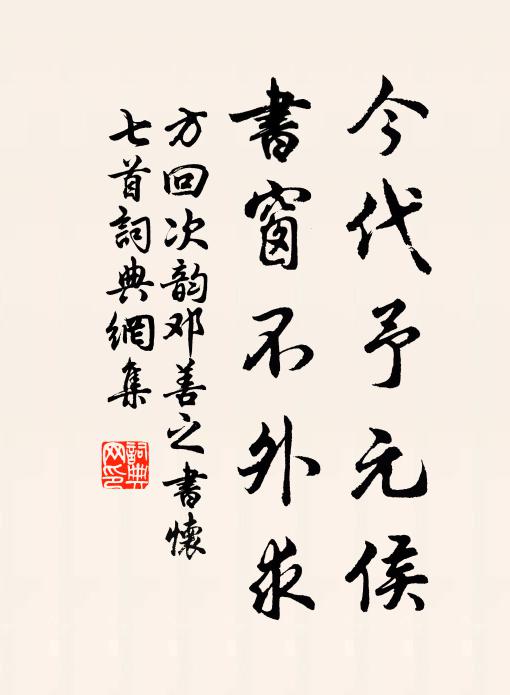 今代予元侯
書窗不外求
方回次韵邓善之書懷
七首詞典網集
詞典网印